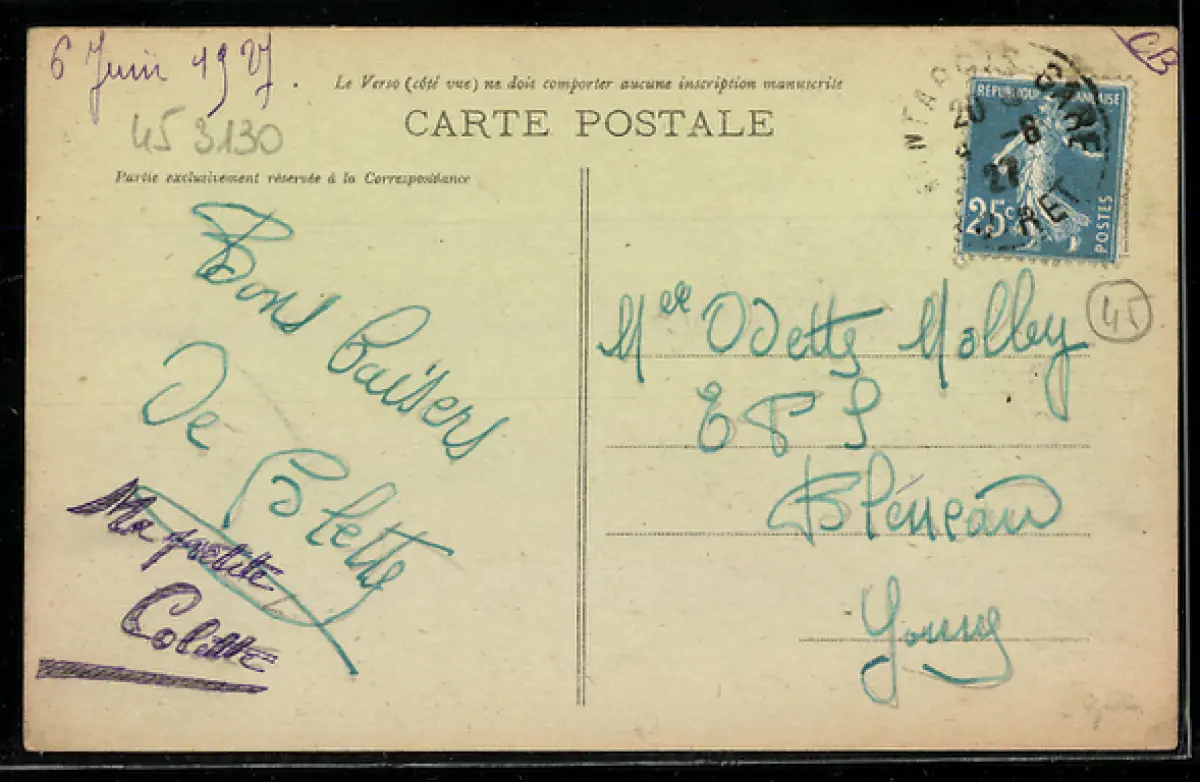 6 Juin 1927.
CB
Le Verso (côté vue) ne doit comporter aucune inscription manuscrite
CARTE POSTALE
45 3130
Partie exclusivement réservée à la Correspondance
RÉPUBLIQUE FRANÇAISE
25c
POSTES
NTARGIS GARE
20
8 -6
27
RET
Bons baisers
De Colette
Ma petite
Colette
Melle Odette Molley
45
E P S
Bléneau
Yonne